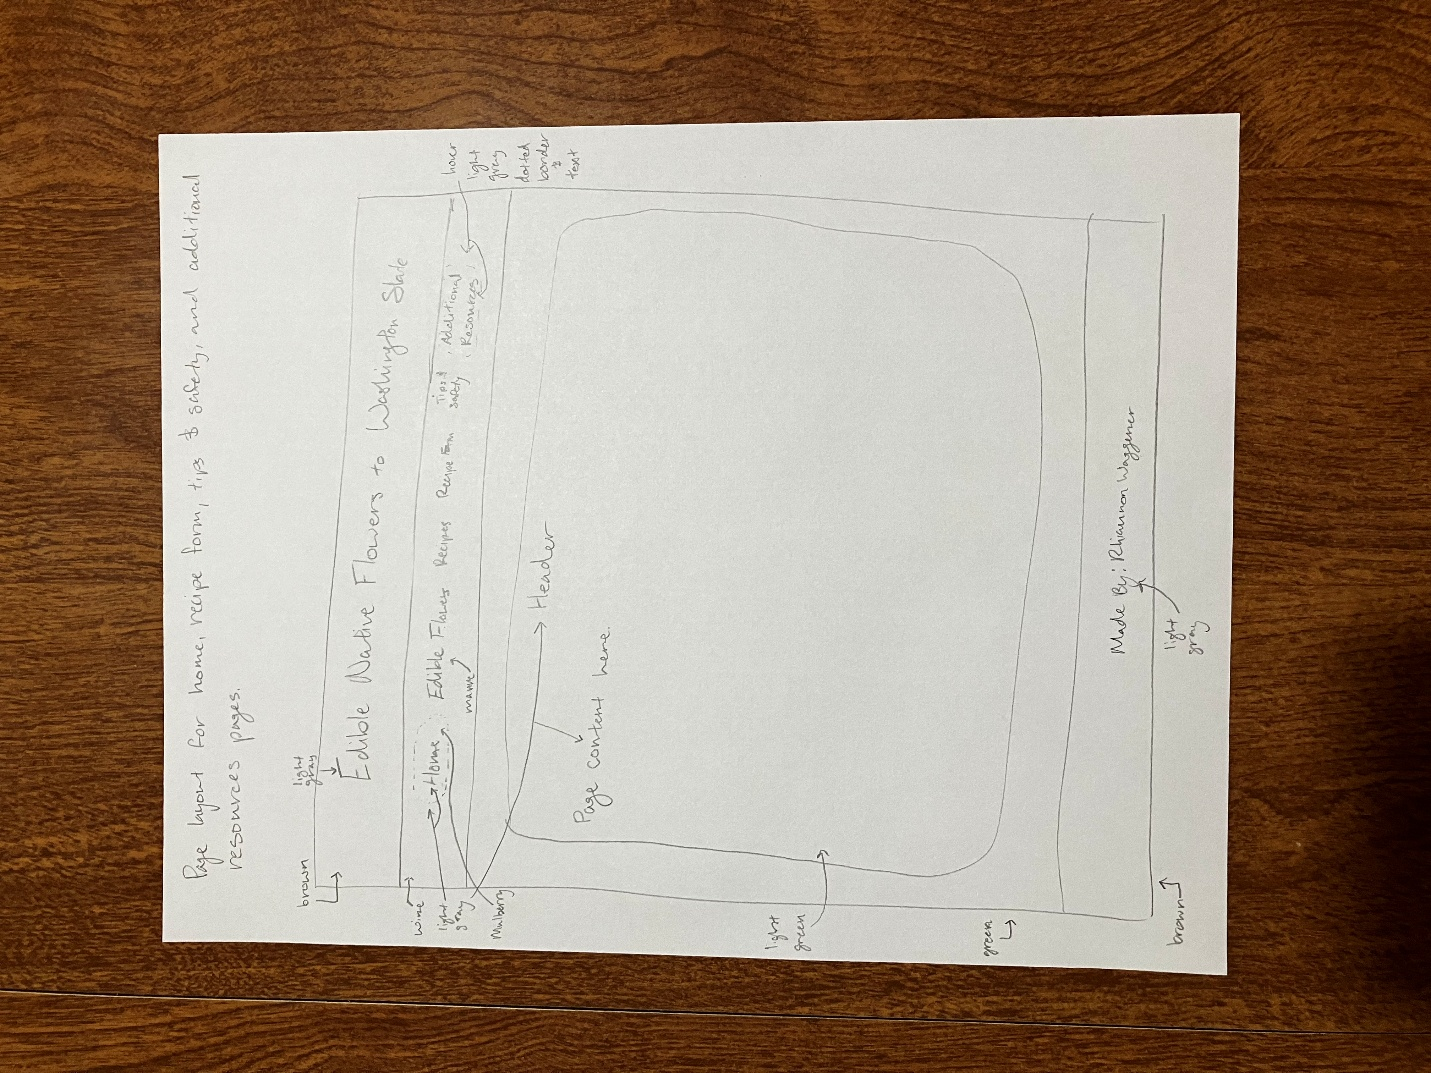 Page layout for home, recipe form, tips & safety, and additional
resources pages.
brown
light
gray
Edible Native Flowers to Washington State
wine
Home
Edible Flowers
Recipes
Recipe Form
Tips &
safety
Additional
Resources
hover
light
gray
dotted
border
&
text
light
gray
Mulberry
mauve
Header
Page content here.
light
green
green
Made By: Rhiannon Waggener
light
gray
brown